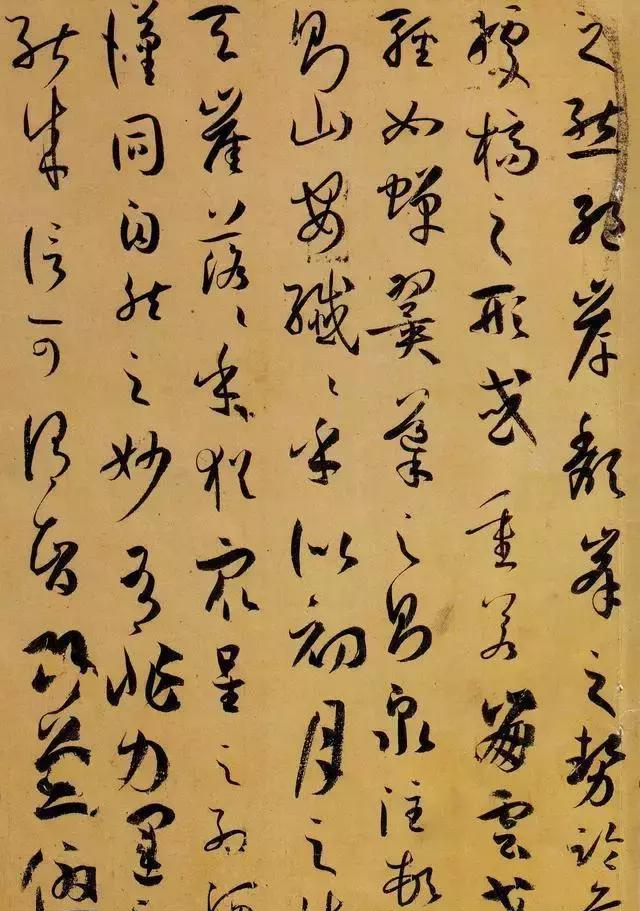 之態絶岸頽峯之勢臨危
據槁之形或重若崩雲或
輕如蟬翼導之則泉注頓
則山安纖〻乎似初月之出
天崖落〻乎猶衆星之列河
漢同自然之妙有非力運之
能成信可謂智巧兼優